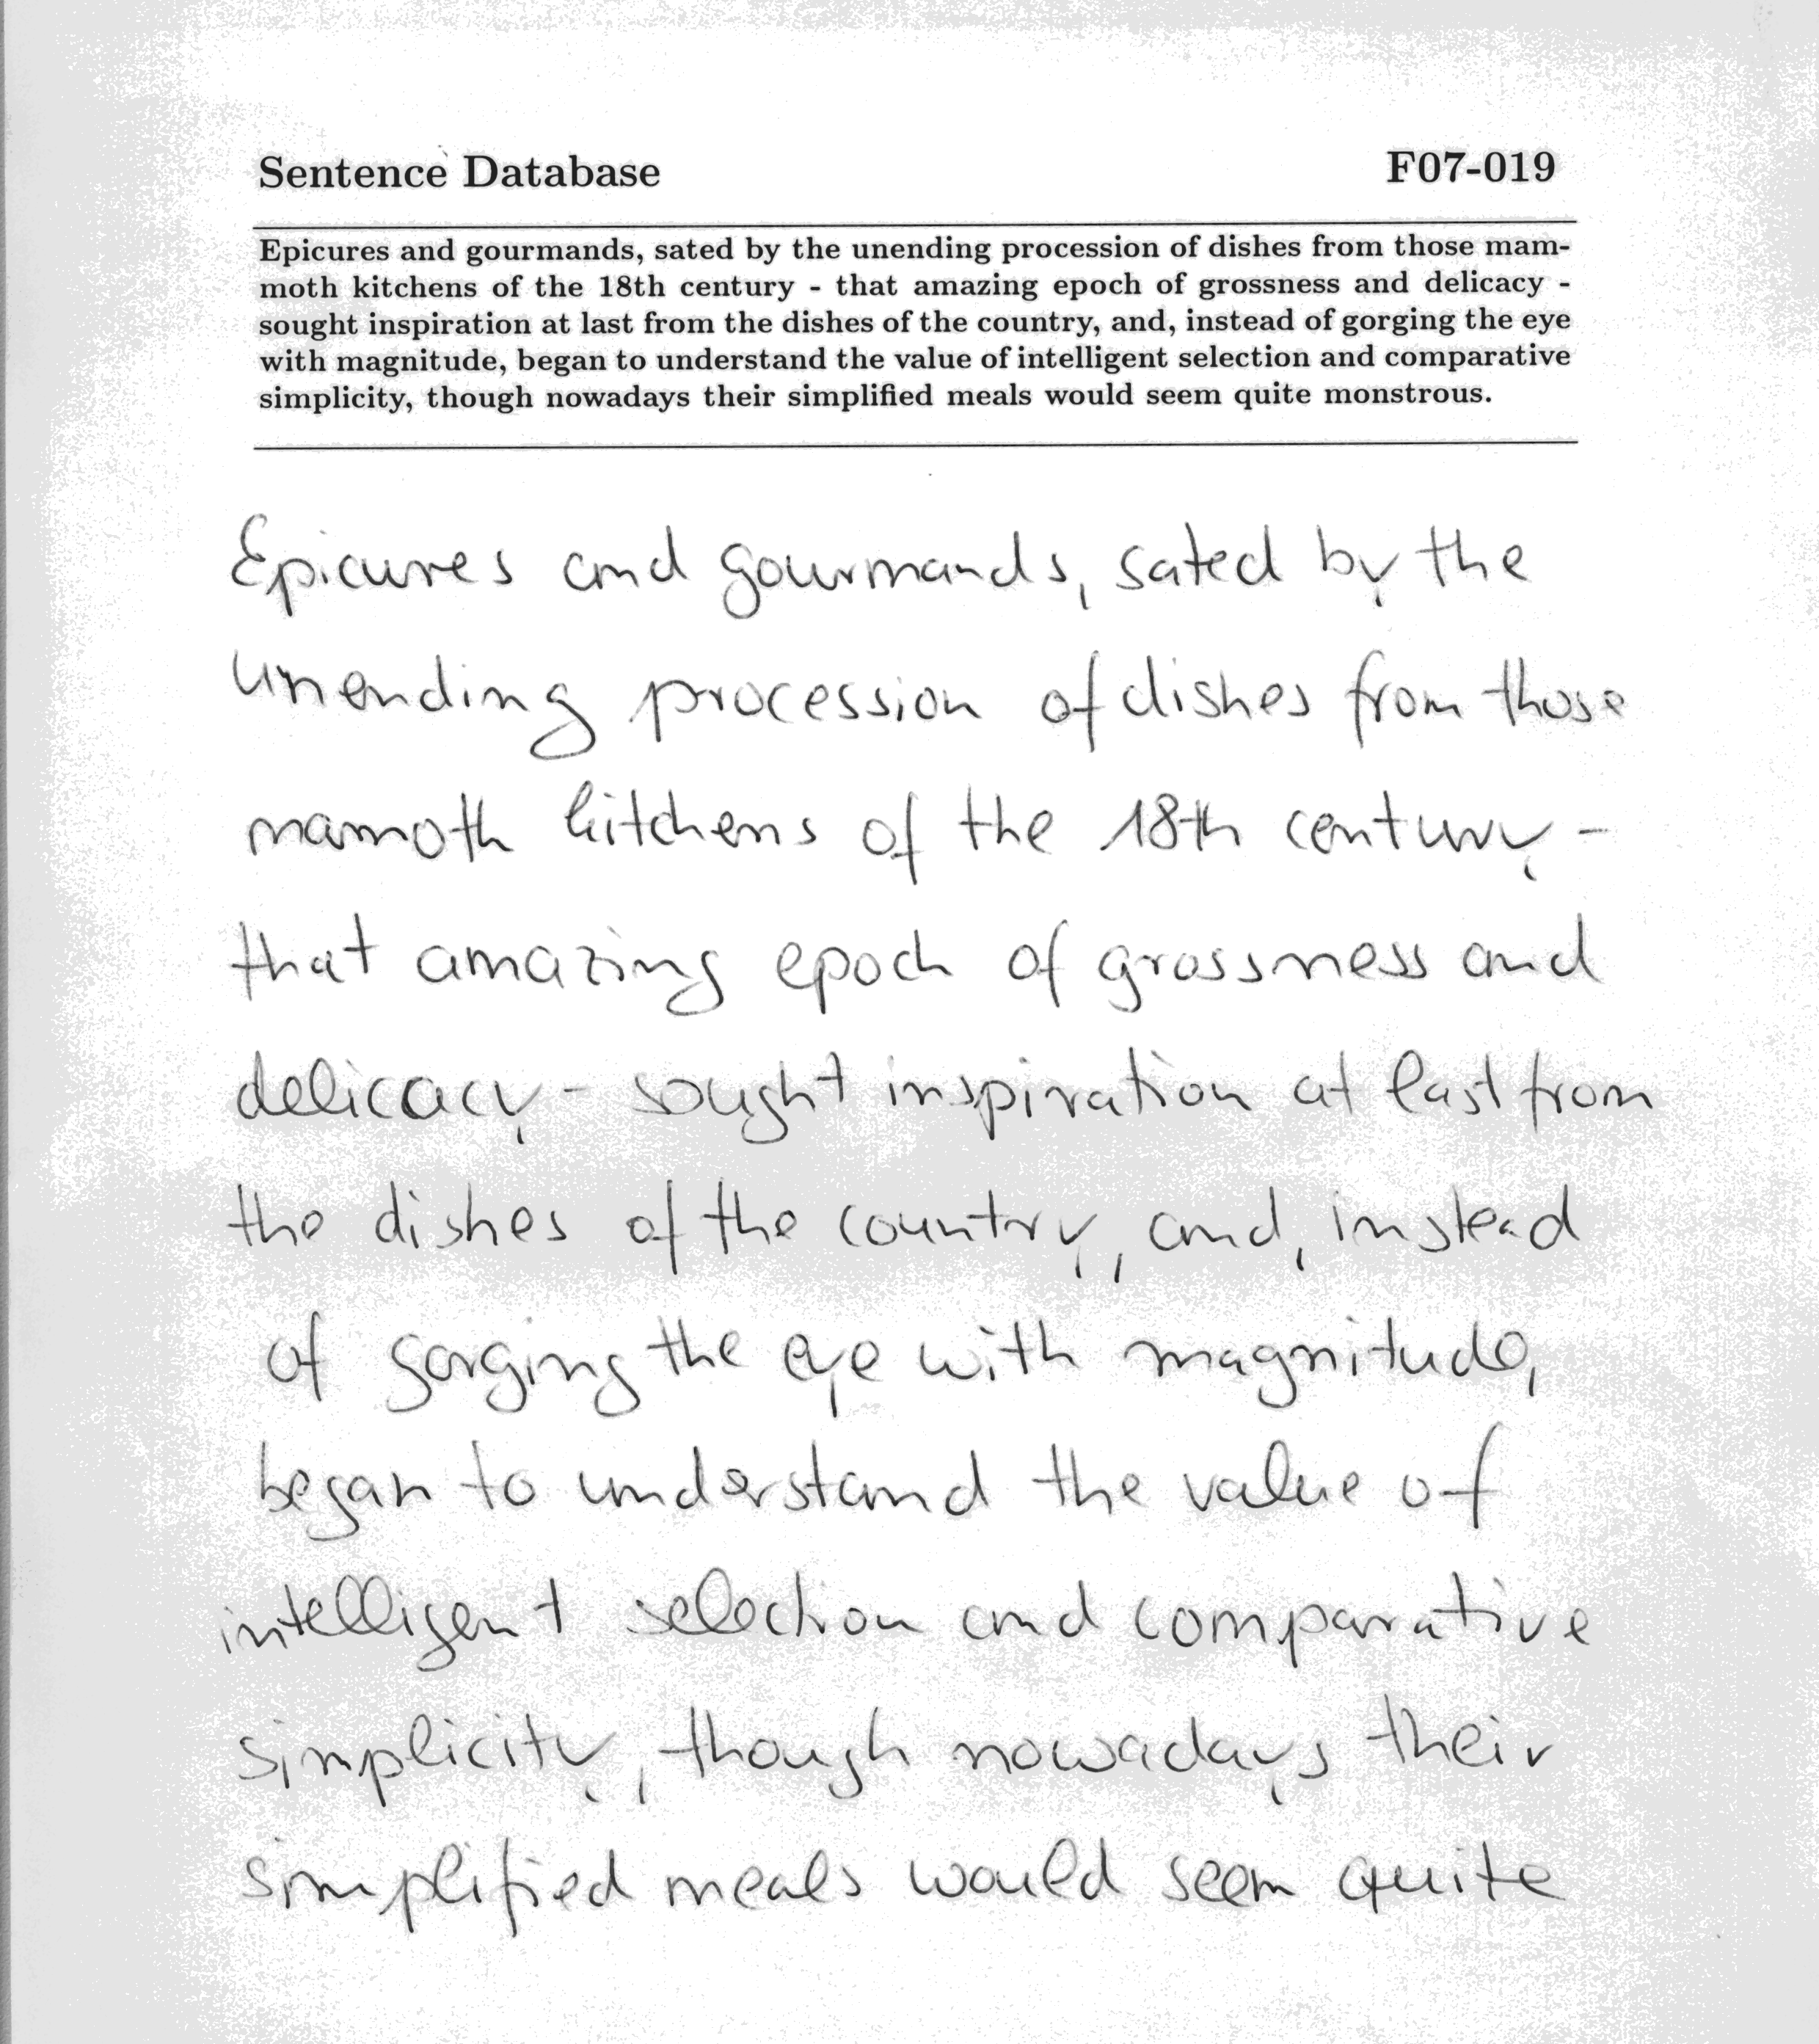 Sentence Database
F07-019
Epicures and gourmands, sated by the unending procession of dishes from those mam-
moth kitchens of the 18th century - that amazing epoch of grossness and delicacy -
sought inspiration at last from the dishes of the country, and, instead of gorging the eye
with magnitude, began to understand the value of intelligent selection and comparative
simplicity, though nowadays their simplified meals would seem quite monstrous.
Epicures and gourmands, sated by the
unending procession of dishes from those
mamoth kitchens of the 18th century -
that amazing epoch of grossness and
delicacy - sought inspiration at last from
the dishes of the country, and, instead
of gorging the eye with magnitude,
began to understand the value of
intelligent selection and comparative
simplicity, though nowadays their
simplified meals would seem quite